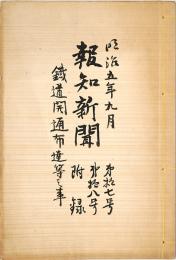 明治五年九月
報知新聞
第拾七号
第拾八号
附録
鐵道開通布達等之事